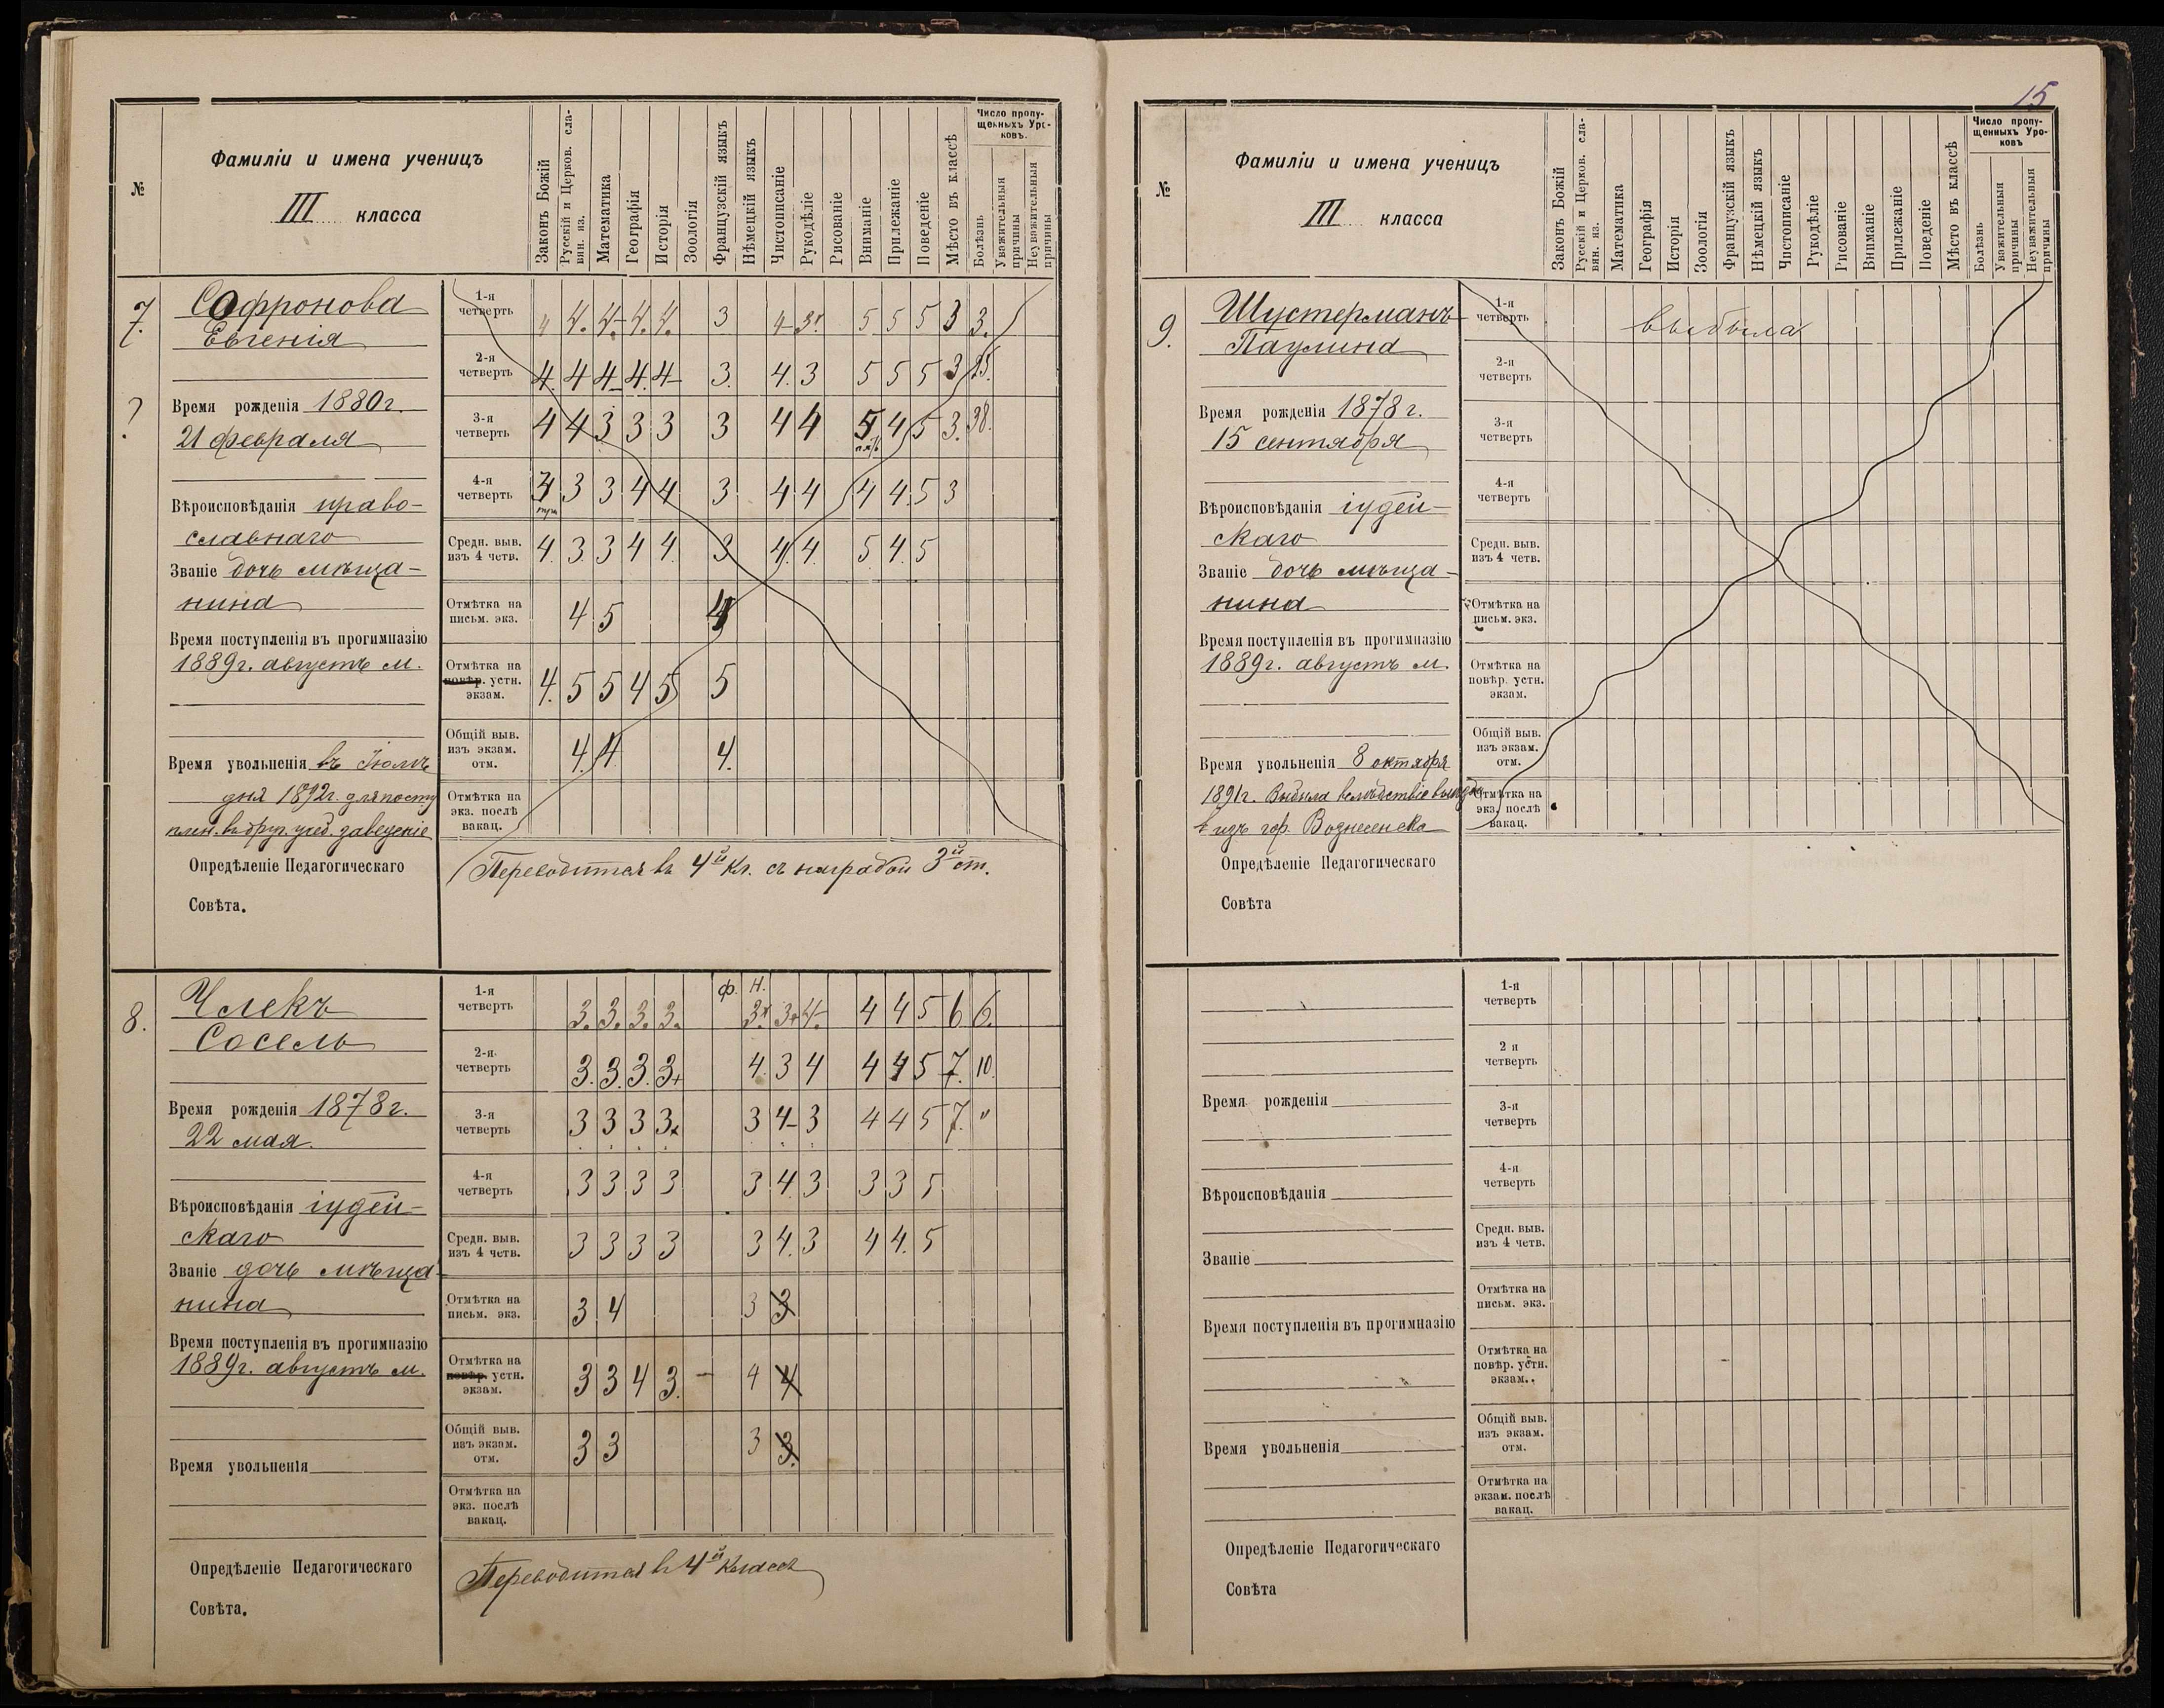 15
№
Фамиліи и имена ученицъ
III класса
Законъ Божій
Русскій и Церков. сла-
вян. яз.
Математика
Географія
Исторія
Зоологія
Французскій языкъ
Нѣмецкій языкъ
Чистописаніе
Рукодѣліе
Рисованіе
Вниманіе
Прилежаніе
Поведеніе
Мѣсто въ классѣ
Число пропу-
щенныхъ Уро-
ковъ.
Болѣзнь
Уважительныя
причины
Неуважительныя
причины
7.
?
Софронова
Евгенія
Время рожденія 1880 г.
21 февраля
Вѣроисповѣданія право-
славнаго
Званіе дочь мѣща-
нина
Время поступленія въ прогимназію
1889 г. августъ м.
Время увольненія въ Іюлѣ
1892 г. для посту
плен. въ друг. учеб. заведеніе
1-я четверть 4 4. 4. 4. 4. 3 4 3+. 5 5 5 3 3.
2-я четверть 4. 4 4 4. 4 3. 4. 3 5 5 5 3 25.
3-я четверть 4 4 3 3 3 3 4 4 5 4 5 3. 38.
4-я четверть 3 3 3 4 4 3 4 4 4 4. 5 3
Средн. выв. изъ 4 четв. 4. 3. 3 4 4. 3 4. 4. 5. 4. 5
Отмѣтка на письм. экз. 4 5 4
Отмѣтка на повѣр. устн. экзам. 4. 5 5 4 5 5
Общій выв. изъ экзам. отм. 4. 4. 4.
Отмѣтка на экз. послѣ вакац.
Опредѣленіе Педагогическаго
Совѣта.
Переводится въ 4й кл. съ наградой 3й ст.
8.
Члекъ
Сосель
Время рожденія 1878 г.
22 мая.
Вѣроисповѣданія іудей-
скаго
Званіе дочь мѣща-
нина
Время поступленія въ прогимназію
1889 г. августъ м.
Время увольненія
ф. н.
1-я четверть 3. 3. 3. 3. 3+ 3+ 4- 4 4 5 6 6.
2-я четверть 3. 3. 3. 3+ 4. 3 4 4 4 5 7. 10.
3-я четверть 3 3 3 3+ 3 4- 3 4 4 5 7. "
4-я четверть 3 3 3 3 3 4. 3 3 3 5
Средн. выв. изъ 4 четв. 3 3 3 3 3 4. 3 4 4. 5
Отмѣтка на письм. экз. 3 4 3 3
Отмѣтка на повѣр. устн. экзам. 3 3 4 3. - 4 4
Общій выв. изъ экзам. отм. 3 3 3 3.
Отмѣтка на экз. послѣ вакац.
Опредѣленіе Педагогическаго
Совѣта.
Переводится въ 4й классъ
№
Фамиліи и имена ученицъ
III класса
Законъ Божій
Русскій и Церков. сла-
вян. яз.
Математика
Географія
Исторія
Зоологія
Французскій языкъ
Нѣмецкій языкъ
Чистописаніе
Рукодѣліе
Рисованіе
Вниманіе
Прилежаніе
Поведеніе
Мѣсто въ классѣ
Число пропу-
щенныхъ Уро-
ковъ
Болѣзнь
Уважительныя
причины
Неуважительныя
причины
9.
Шустерманъ
Паулина
Время рожденія 1878 г.
15 сентября
Вѣроисповѣданія іудей-
скаго
Званіе дочь мѣща-
нина
Время поступленія въ прогимназію
1889 г. августъ м.
Время увольненія 8 октября
1891 г. Выбыла вслѣдствіе выѣзда
изъ гор. Вознесенска
1-я четверть выбыла
2-я четверть
3-я четверть
4-я четверть
Средн. выв. изъ 4 четв.
Отмѣтка на письм. экз.
Отмѣтка на повѣр. устн. экзам.
Общій выв. изъ экзам. отм.
Отмѣтка на экз. послѣ вакац.
Опредѣленіе Педагогическаго
Совѣта
Время рожденія
Вѣроисповѣданія
Званіе
Время поступленія въ прогимназію
Время увольненія
1-я четверть
2 я четверть
3-я четверть
4-я четверть
Средн. выв. изъ 4 четв.
Отмѣтка на письм. экз.
Отмѣтка на повѣр. устн. экзам.
Общій выв. изъ экзам. отм.
Отмѣтка на экзам. послѣ вакац.
Опредѣленіе Педагогическаго
Совѣта